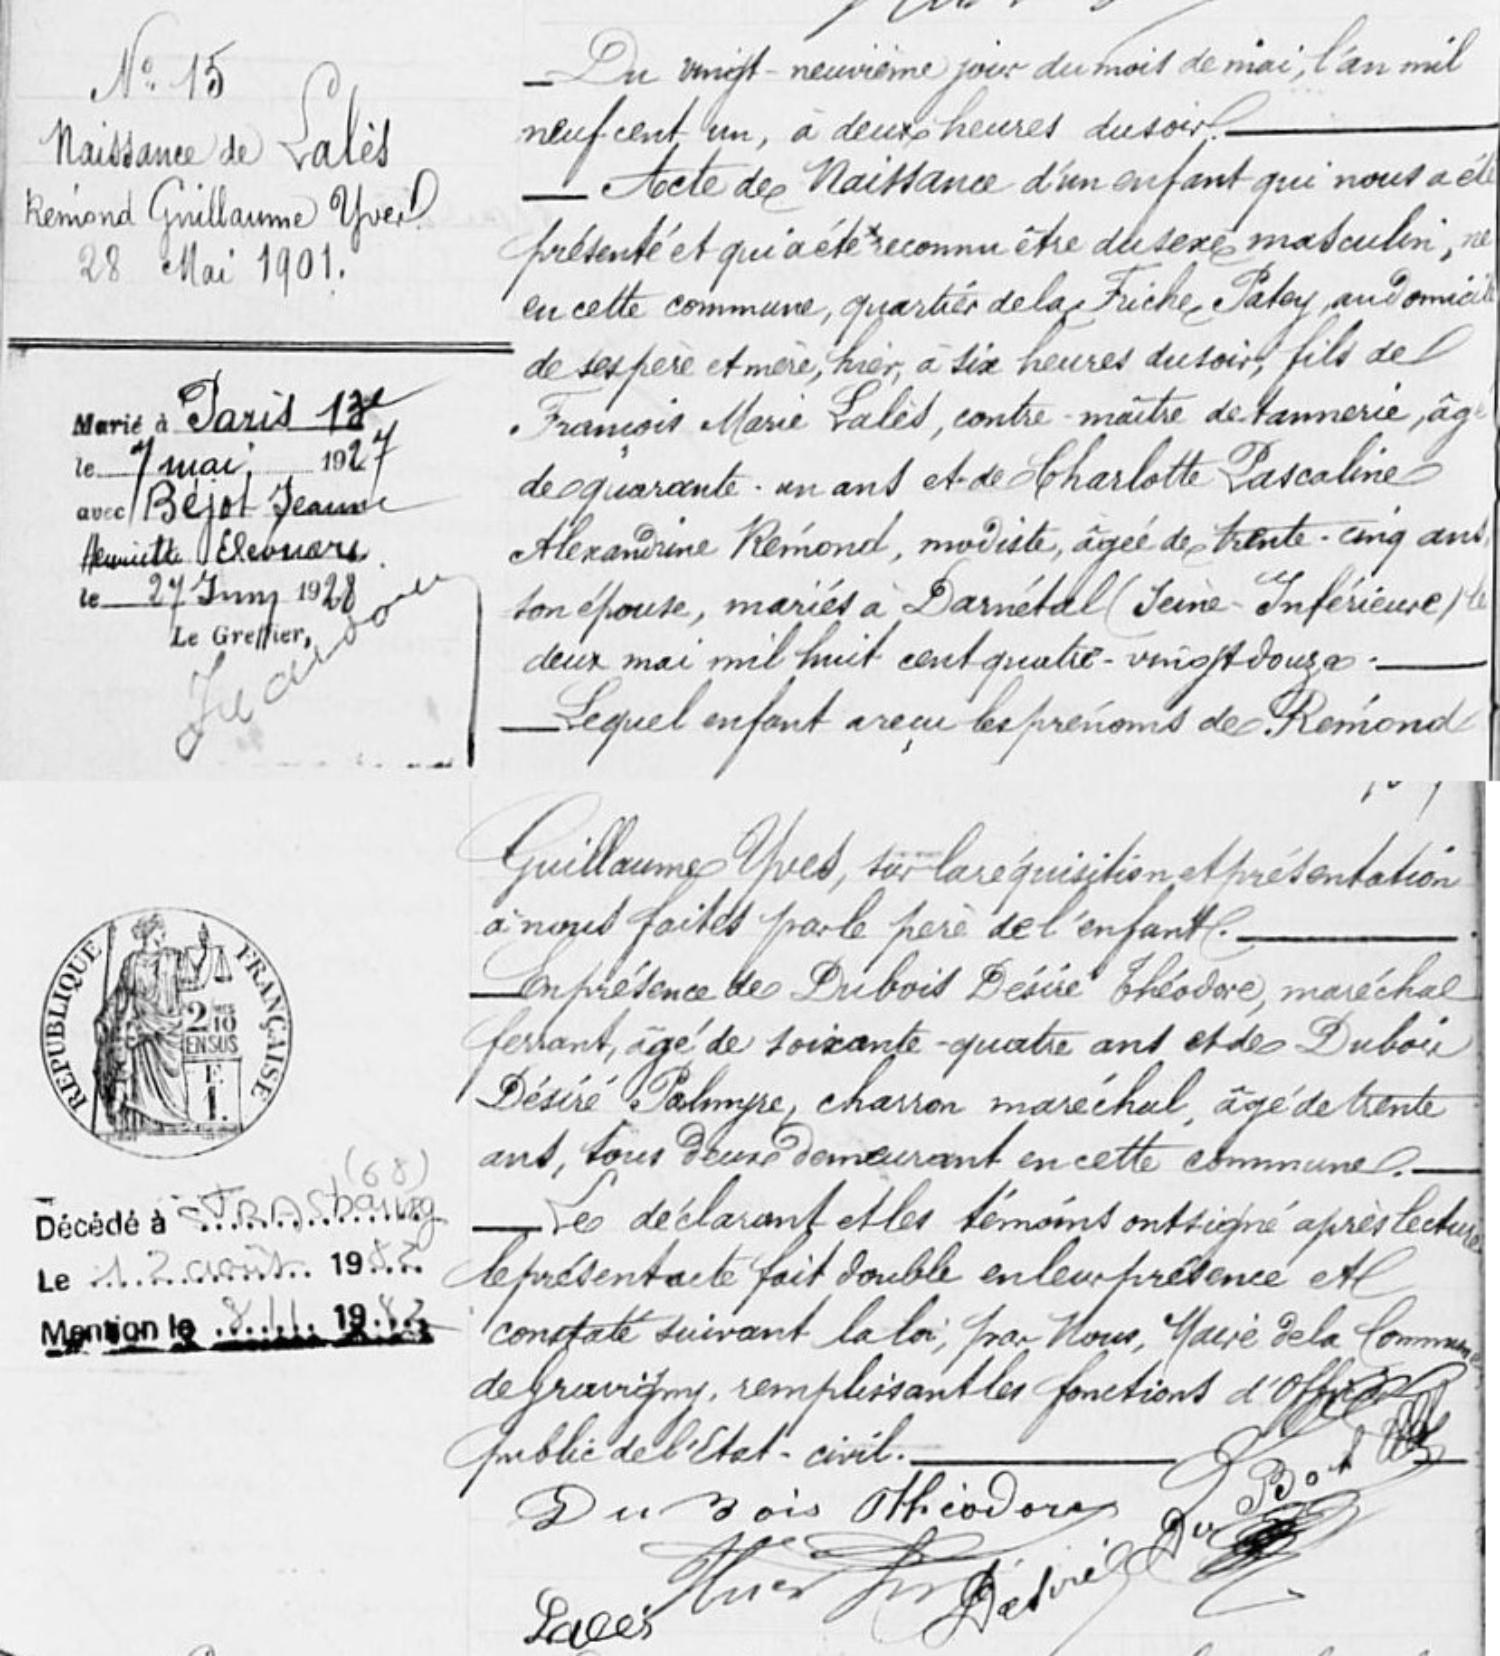 N° 15
Naissance de Lalès
Rémond Guillaume Yves
28 Mai 1901.
Marié à Paris 13e
le 7 mai 1927
avec Béjot Jeanne
Henriette
le 27 Juin 1928
Le Greffier,
Du vingt-neuvième jour du mois de mai, l'an mil
neuf cent un, à deux heures du soir.
Acte de Naissance d'un enfant qui nous a été
présenté et qui a été reconnu être du sexe masculin, né
en cette commune, quartier de la Friche Patey, au domicile
de ses père et mère, hier, à six heures du soir, fils de
François Marie Lalès, contre-maître de tannerie, âgé
de quarante-un ans et de Charlotte Pascaline
Alexandrine Rémond, modiste, âgée de trente-cinq ans,
son épouse, mariés à Darnétal (Seine-Inférieure) le
deux mai mil huit cent quatre-vingt douze.
Lequel enfant a reçu les prénoms de Rémond
Guillaume Yves, sur la réquisition et présentation
à nous faites par le père de l'enfant.
En présence de Dubois Désiré Théodore, maréchal
ferrant, âgé de soixante-quatre ans et de Dubois
Désiré Palmyre, charron maréchal, âgé de trente
ans, tous deux demeurant en cette commune.
Le déclarant et les témoins ont signé après lecture
le présent acte fait double en leur présence et
constaté suivant la loi, par Nous, Maire de la Commune
de Gravigny, remplissant les fonctions d'Officier
public de l'Etat-civil.
RÉPUBLIQUE FRANÇAISE
2/10
EN SUS
1.
(68)
Décédé à STRASbourg
Le 12 août 1982
Mention le 8.11 1982
DuBois Théodore
Désiré DuBois
Lalès